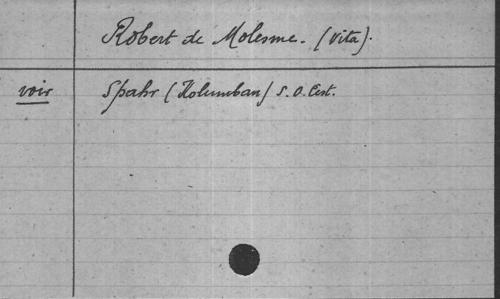 Robert de Molesme. (Vita).
voir Spahr (Kolumban) S. O. Cist.